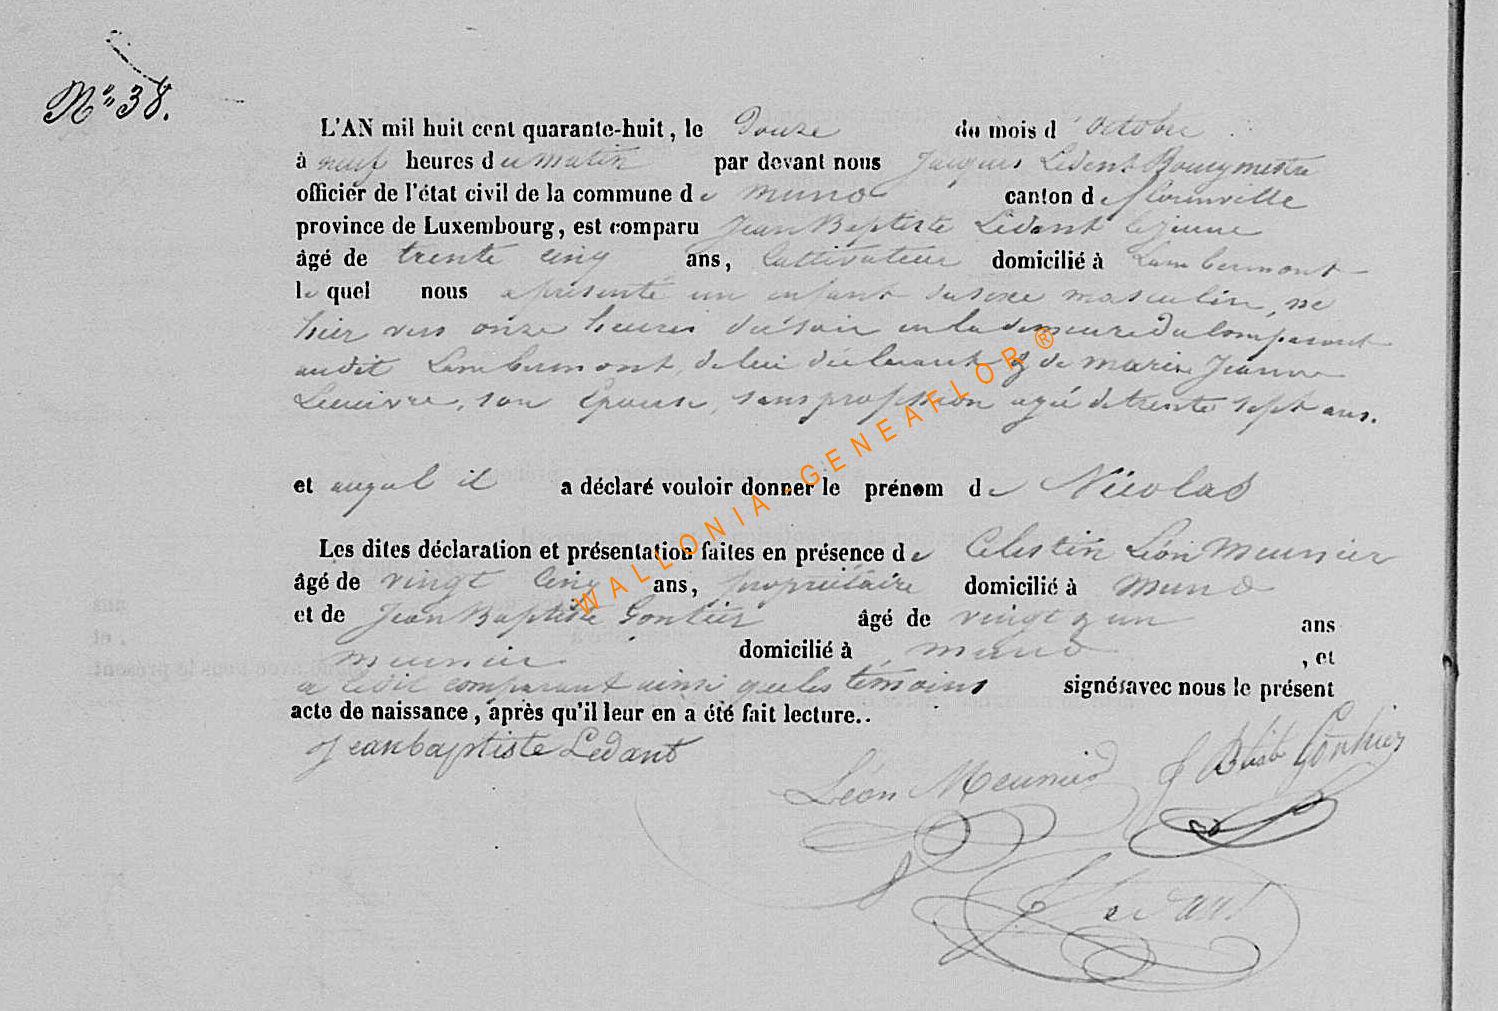 N° 38.
L'AN mil huit cent quarante-huit, le Douze du mois d'Octobre
à neuf heures du matin par devant nous Jacques Ledent Bourgmestre
officier de l'état civil de la commune de muno canton de florenville
province de Luxembourg, est comparu Jean Baptiste Lédant lejeune
âgé de trente cinq ans, Cultivateur domicilié à Lambermont
le quel nous a présenté un enfant dusexe masculin, né
hier vers onze heures du soir en la demeure du Comparant
audit Lambermont, de lui déclarant & de marie Jeanne
son Epouse, sans profession agée de trente sept ans.
et auquel il a déclaré vouloir donner le prénom de Nicolas
Les dites déclaration et présentation faites en présence de Célestin Léon Meunier
âgé de vingt cinq ans, propriétaire domicilié à Muno
et de Jean Baptiste Gontier âgé de vingt & un ans
meunier domicilié à muno , et
a ledit comparant ainsi que les témoins signés avec nous le présent
acte de naissance, après qu'il leur en a été fait lecture..
Jeanbaptiste Ledant
Léon Meunier
J Btiste Gonthier
J Ledant
WALLONIA-GENEAFLOR®